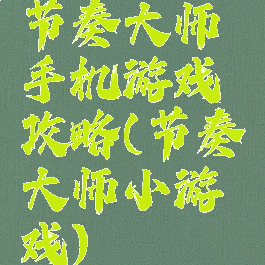 节奏大师
手机游戏
攻略(节奏
大师小游
戏)